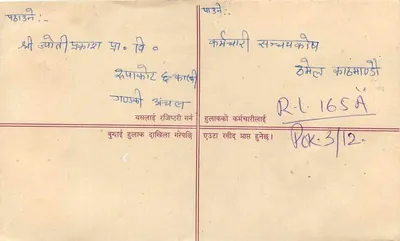 पठाउने:-
श्री ज्योती प्रकाश प्रा. वि.
रुपाकोट ६ कास्की
गण्डकी अंचल
पाउने:-
कर्मचारी सञ्चयकोष
ठमेल काठमाण्डौ
R.L. 165A
Pok. 3/12.
यसलाई रजिष्टरी गर्न हुलाकको कर्मचारीलाई
बुझाई हुलाक दाखिला गरेपछि एउटा रसीद प्राप्त हुनेछ।